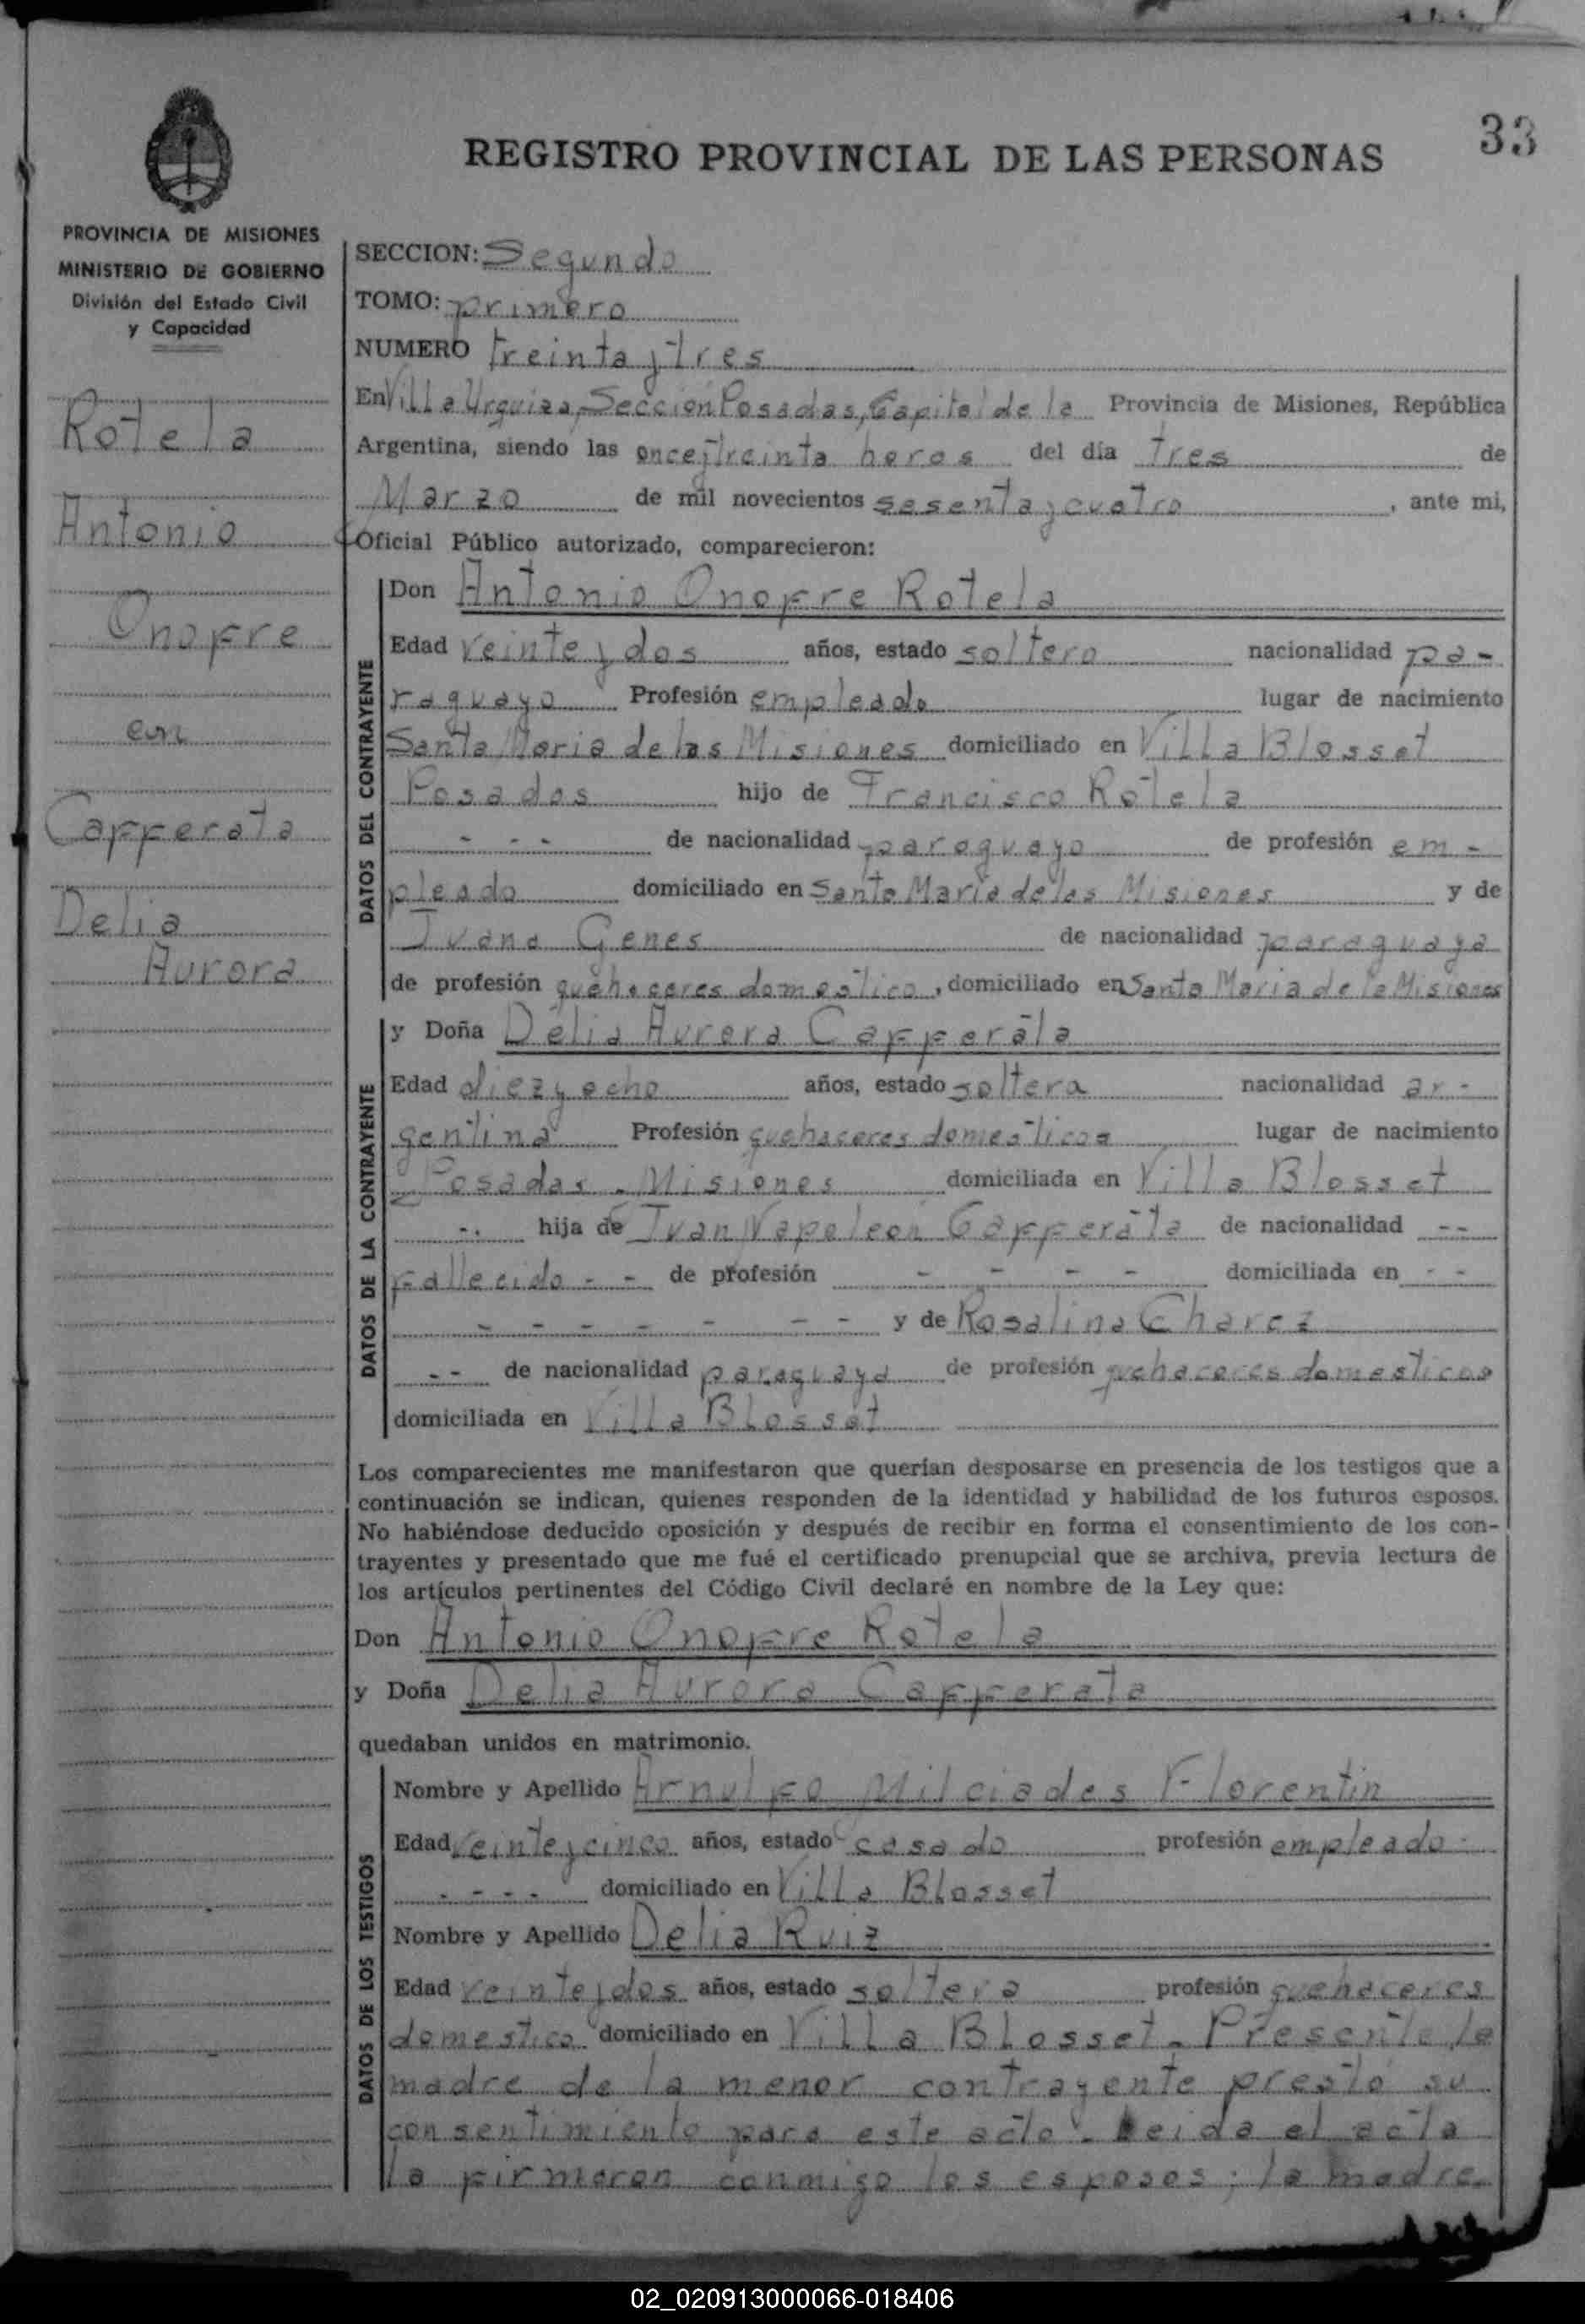 33
REGISTRO PROVINCIAL DE LAS PERSONAS
PROVINCIA DE MISIONES
MINISTERIO DE GOBIERNO
División del Estado Civil
y Capacidad
Rotela
Antonio
Onofre
con
Cafferata
Delia
Aurora
SECCION: Segundo
TOMO: primero
NUMERO treinta y tres
En Villa Urquiza, Sección Posadas, Capital de la Provincia de Misiones, República
Argentina, siendo las once y treinta horas del día tres de
Marzo de mil novecientos sesenta y cuatro, ante mi,
Oficial Público autorizado, comparecieron:
DATOS DEL CONTRAYENTE
Don Antonio Onofre Rotela
Edad veinte y dos años, estado soltero nacionalidad pa-
raguayo Profesión empleado lugar de nacimiento
Santa Maria de las Misiones domiciliado en Villa Blosset
Posadas hijo de Francisco Rotela
- - - de nacionalidad paraguayo de profesión em-
pleado domiciliado en Santa Maria de las Misiones y de
Juana Genes de nacionalidad paraguaya
de profesión quehaceres domestico, domiciliado en Santa Maria de la Misiones
DATOS DE LA CONTRAYENTE
y Doña Delia Aurora Cafferata
Edad diez y ocho años, estado soltera nacionalidad ar-
gentina Profesión quehaceres domesticos lugar de nacimiento
Posadas - Misiones domiciliada en Villa Blosset
-. hija de Juan Napoleon Cafferata de nacionalidad --
fallecido - - de profesión - - - - domiciliada en - -
- - - - - - - y de Rosalina Charez
-- de nacionalidad paraguaya de profesión quehaceres domesticos
domiciliada en Villa Blosset
Los comparecientes me manifestaron que querían desposarse en presencia de los testigos que a
continuación se indican, quienes responden de la identidad y habilidad de los futuros esposos.
No habiéndose deducido oposición y después de recibir en forma el consentimiento de los con-
trayentes y presentado que me fué el certificado prenupcial que se archiva, previa lectura de
los artículos pertinentes del Código Civil declaré en nombre de la Ley que:
Don Antonio Onofre Rotela
y Doña Delia Aurora Cafferata
quedaban unidos en matrimonio.
DATOS DE LOS TESTIGOS
Nombre y Apellido Arnulfo Milciades Florentin
Edad veinte y cinco años, estado casado profesión empleado -
- - - - domiciliado en Villa Blosset
Nombre y Apellido Delia Ruiz
Edad veinte y dos años, estado soltera profesión quehaceres
domestico domiciliado en Villa Blosset - Presente la
madre de la menor contrayente prestó su
consentimiento para este acto - Leida el acta
la firmaron conmigo los esposos; la madre
02_020913000066-018406